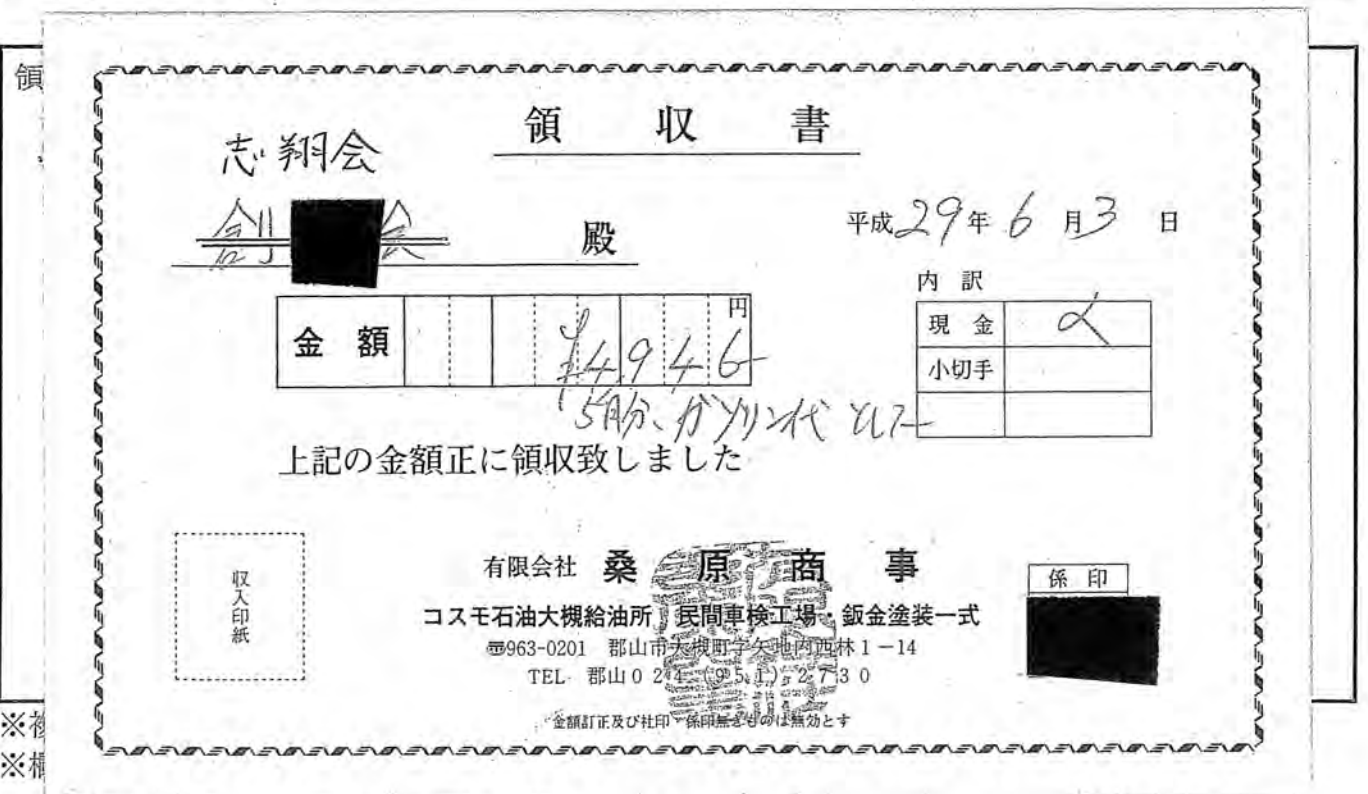 領
領収書
志翔会
創 会 殿
平成29年6月3日
内訳
金額 ¥4946 円
現金
小切手
5月分、ガソリン代として
上記の金額正に領収致しました
収入印紙
有限会社 桑原商事
係印
コスモ石油大槻給油所 民間車検工場・鈑金塗装一式
〒963-0201 郡山市大槻町字矢地内西林1-14
TEL 郡山024(951)2730
金額訂正及び社印・係印無きものは無効とす
※複
※欄